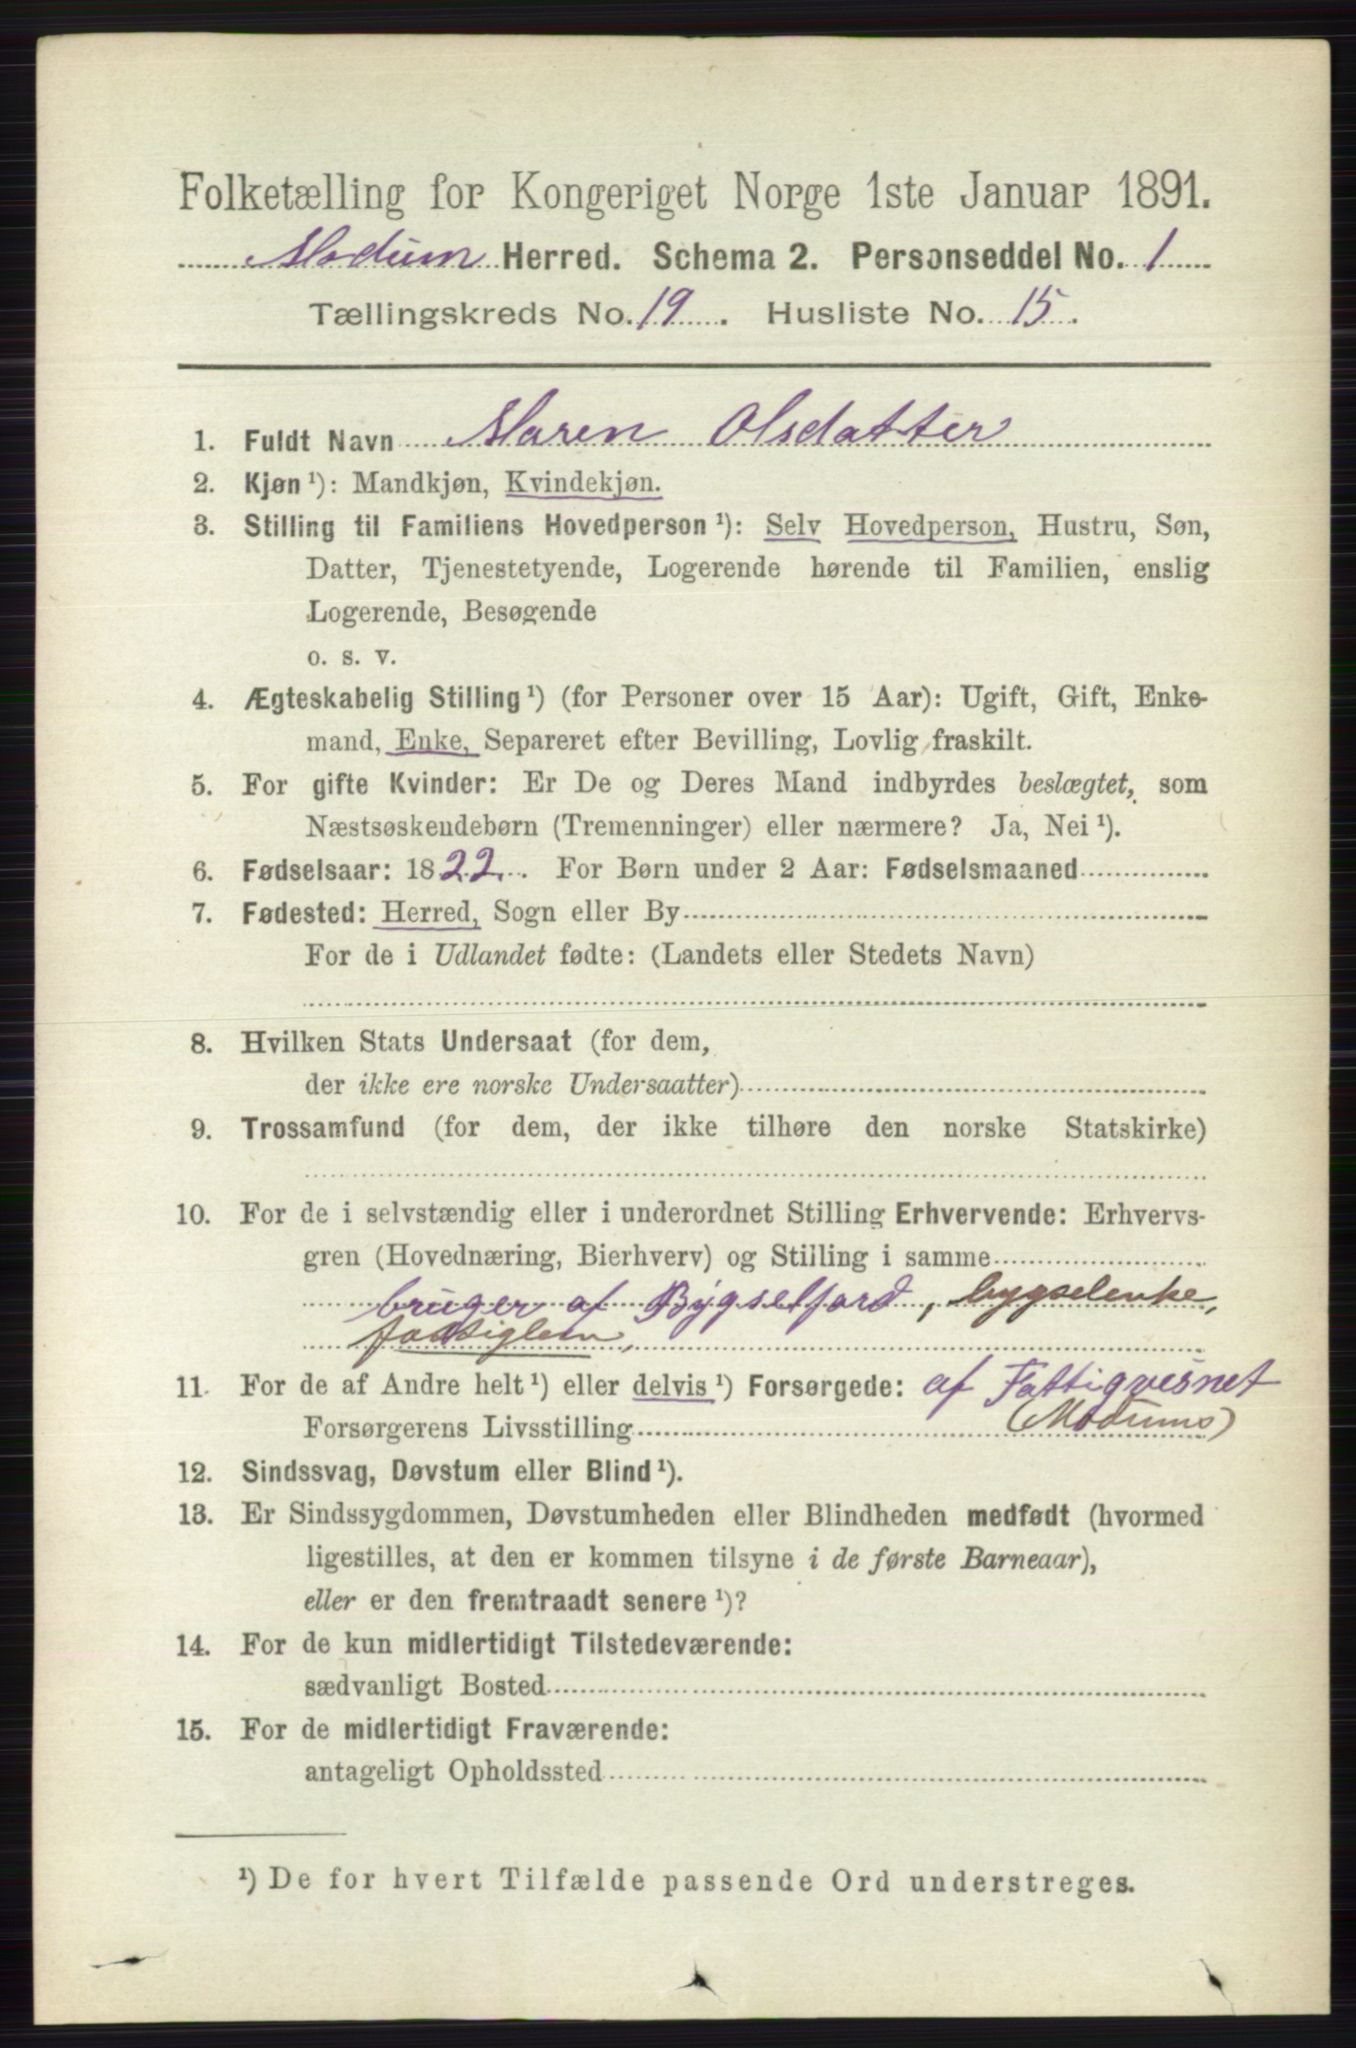 Folketælling for Kongeriget Norge 1ste Januar 1891.
Modum Herred. Schema 2. Personseddel No. 1
Tællingskreds No. 19. Husliste No. 15.
1. Fuldt Navn Maren Olsdatter
2. Kjøn ¹): Mandkjøn, Kvindekjøn.
3. Stilling til Familiens Hovedperson ¹): Selv Hovedperson, Hustru, Søn,
Datter, Tjenestetyende, Logerende hørende til Familien, enslig
Logerende, Besøgende
o. s. v.
4. Ægteskabelig Stilling ¹) (for Personer over 15 Aar): Ugift, Gift, Enke-
mand, Enke, Separeret efter Bevilling, Lovlig fraskilt.
5. For gifte Kvinder: Er De og Deres Mand indbyrdes beslægtet, som
Næstsøskendebørn (Tremenninger) eller nærmere? Ja, Nei ¹).
6. Fødselsaar: 1822. For Børn under 2 Aar: Fødselsmaaned
7. Fødested: Herred, Sogn eller By
For de i Udlandet fødte: (Landets eller Stedets Navn)
8. Hvilken Stats Undersaat (for dem,
der ikke ere norske Undersaatter)
9. Trossamfund (for dem, der ikke tilhøre den norske Statskirke)
10. For de i selvstændig eller i underordnet Stilling Erhvervende: Erhvervs-
gren (Hovednæring, Bierhverv) og Stilling i samme
bruger af Bygseljord, bygselenke,
fattiglem,
11. For de af Andre helt ¹) eller delvis ¹) Forsørgede: af Fattigvesnet
Forsørgerens Livsstilling (Modums)
12. Sindssvag, Døvstum eller Blind ¹).
13. Er Sindssygdommen, Døvstumheden eller Blindheden medfødt (hvormed
ligestilles, at den er kommen tilsyne i de første Barneaar),
eller er den fremtraadt senere ¹)?
14. For de kun midlertidigt Tilstedeværende:
sædvanligt Bosted
15. For de midlertidigt Fraværende:
antageligt Opholdssted
¹) De for hvert Tilfælde passende Ord understreges.